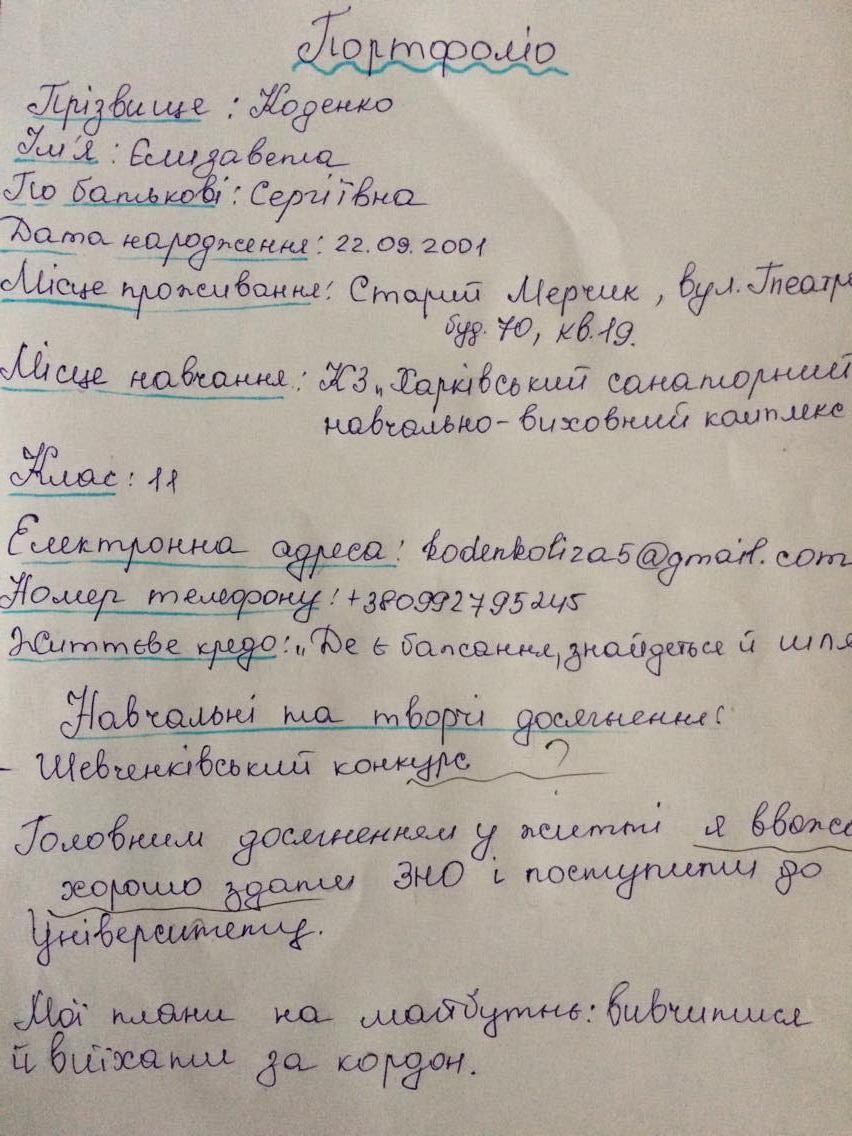 Портфоліо
Прізвище : Коденко
Ім'я : Єлизавета
По батькові : Сергіївна
Дата народження : 22.09.2001
Місце проживання : Старий Мерчик , вул. Театр
буд. 70, кв.19.
Місце навчання : КЗ „Харківський санаторний
навчально-виховний комплекс
Клас : 11
Електронна адреса : kodenkoliza5@gmail.com
Номер телефону : +380992795245
Життєве кредо : „Де є бапсання, знайдеться й шля
Навчальні та творчі досягнення :
- Шевченківський конкурс ?
Головним досягненням у житті я вважа
хорошо здати ЗНО і поступити до
Університету.
Мої плани на майбутнь : вивчитися
й виїхати за кордон.